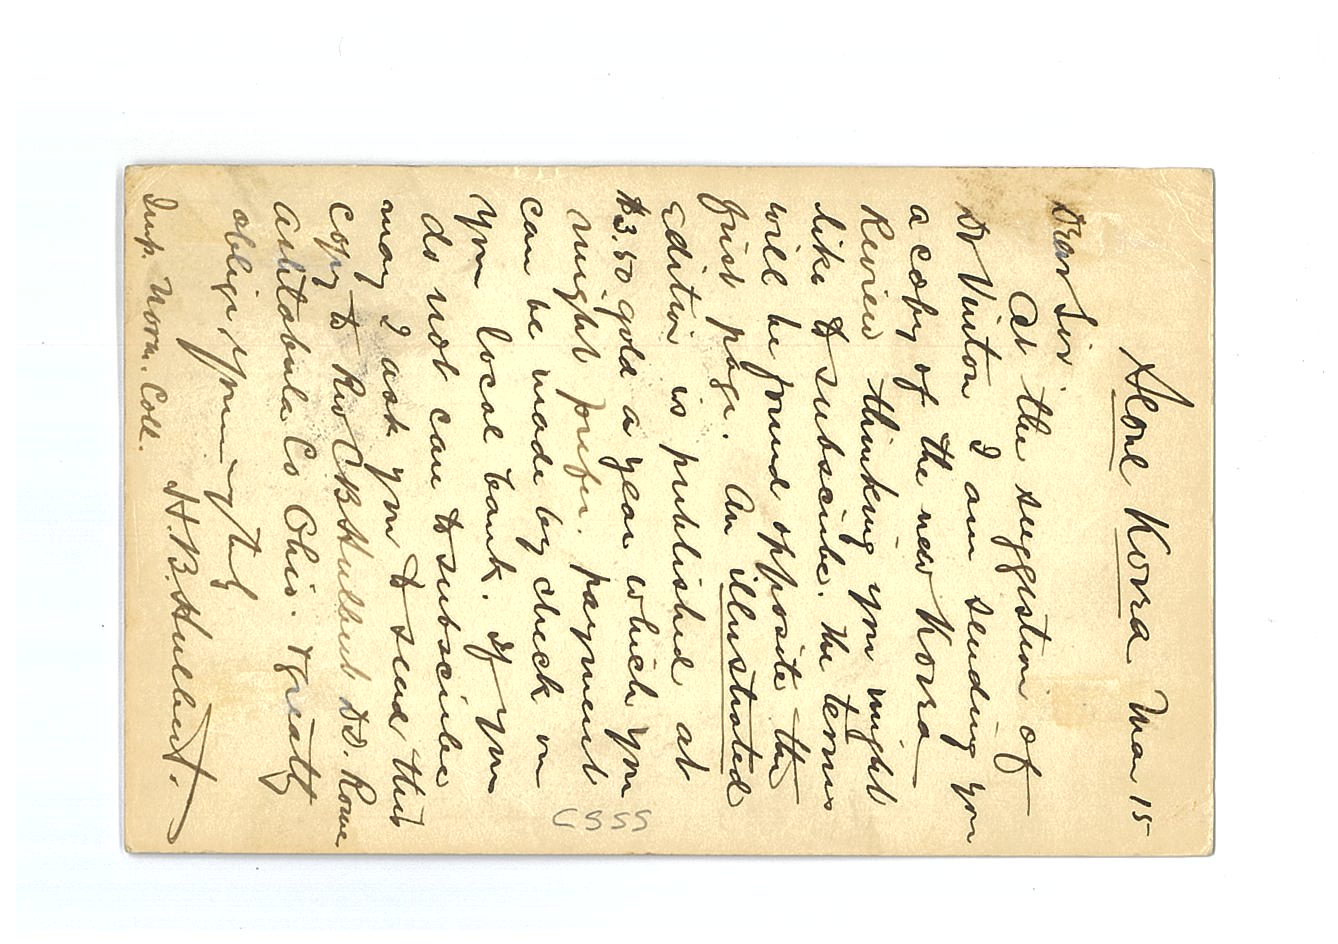 Seoul Korea Mar 15
Dear Sir
At the suggestion of
Dr Vinton I am sending you
a copy of the new Korea
Review thinking you might
like to subscribe. The terms
will be found opposite the
first page. An illustrated
Edition is published at
$3.50 gold a year which you
might prefer. payment
can be made by check on
your local bank. If you
do not care to subscribe
may I ask you to send this
copy to Rev C B Hulbert D.D. Rome
Ashtabula Co Ohio. & greatly
oblige yours truly
H. B. Hulbert.
Imp. Norm. Coll.
CSSS